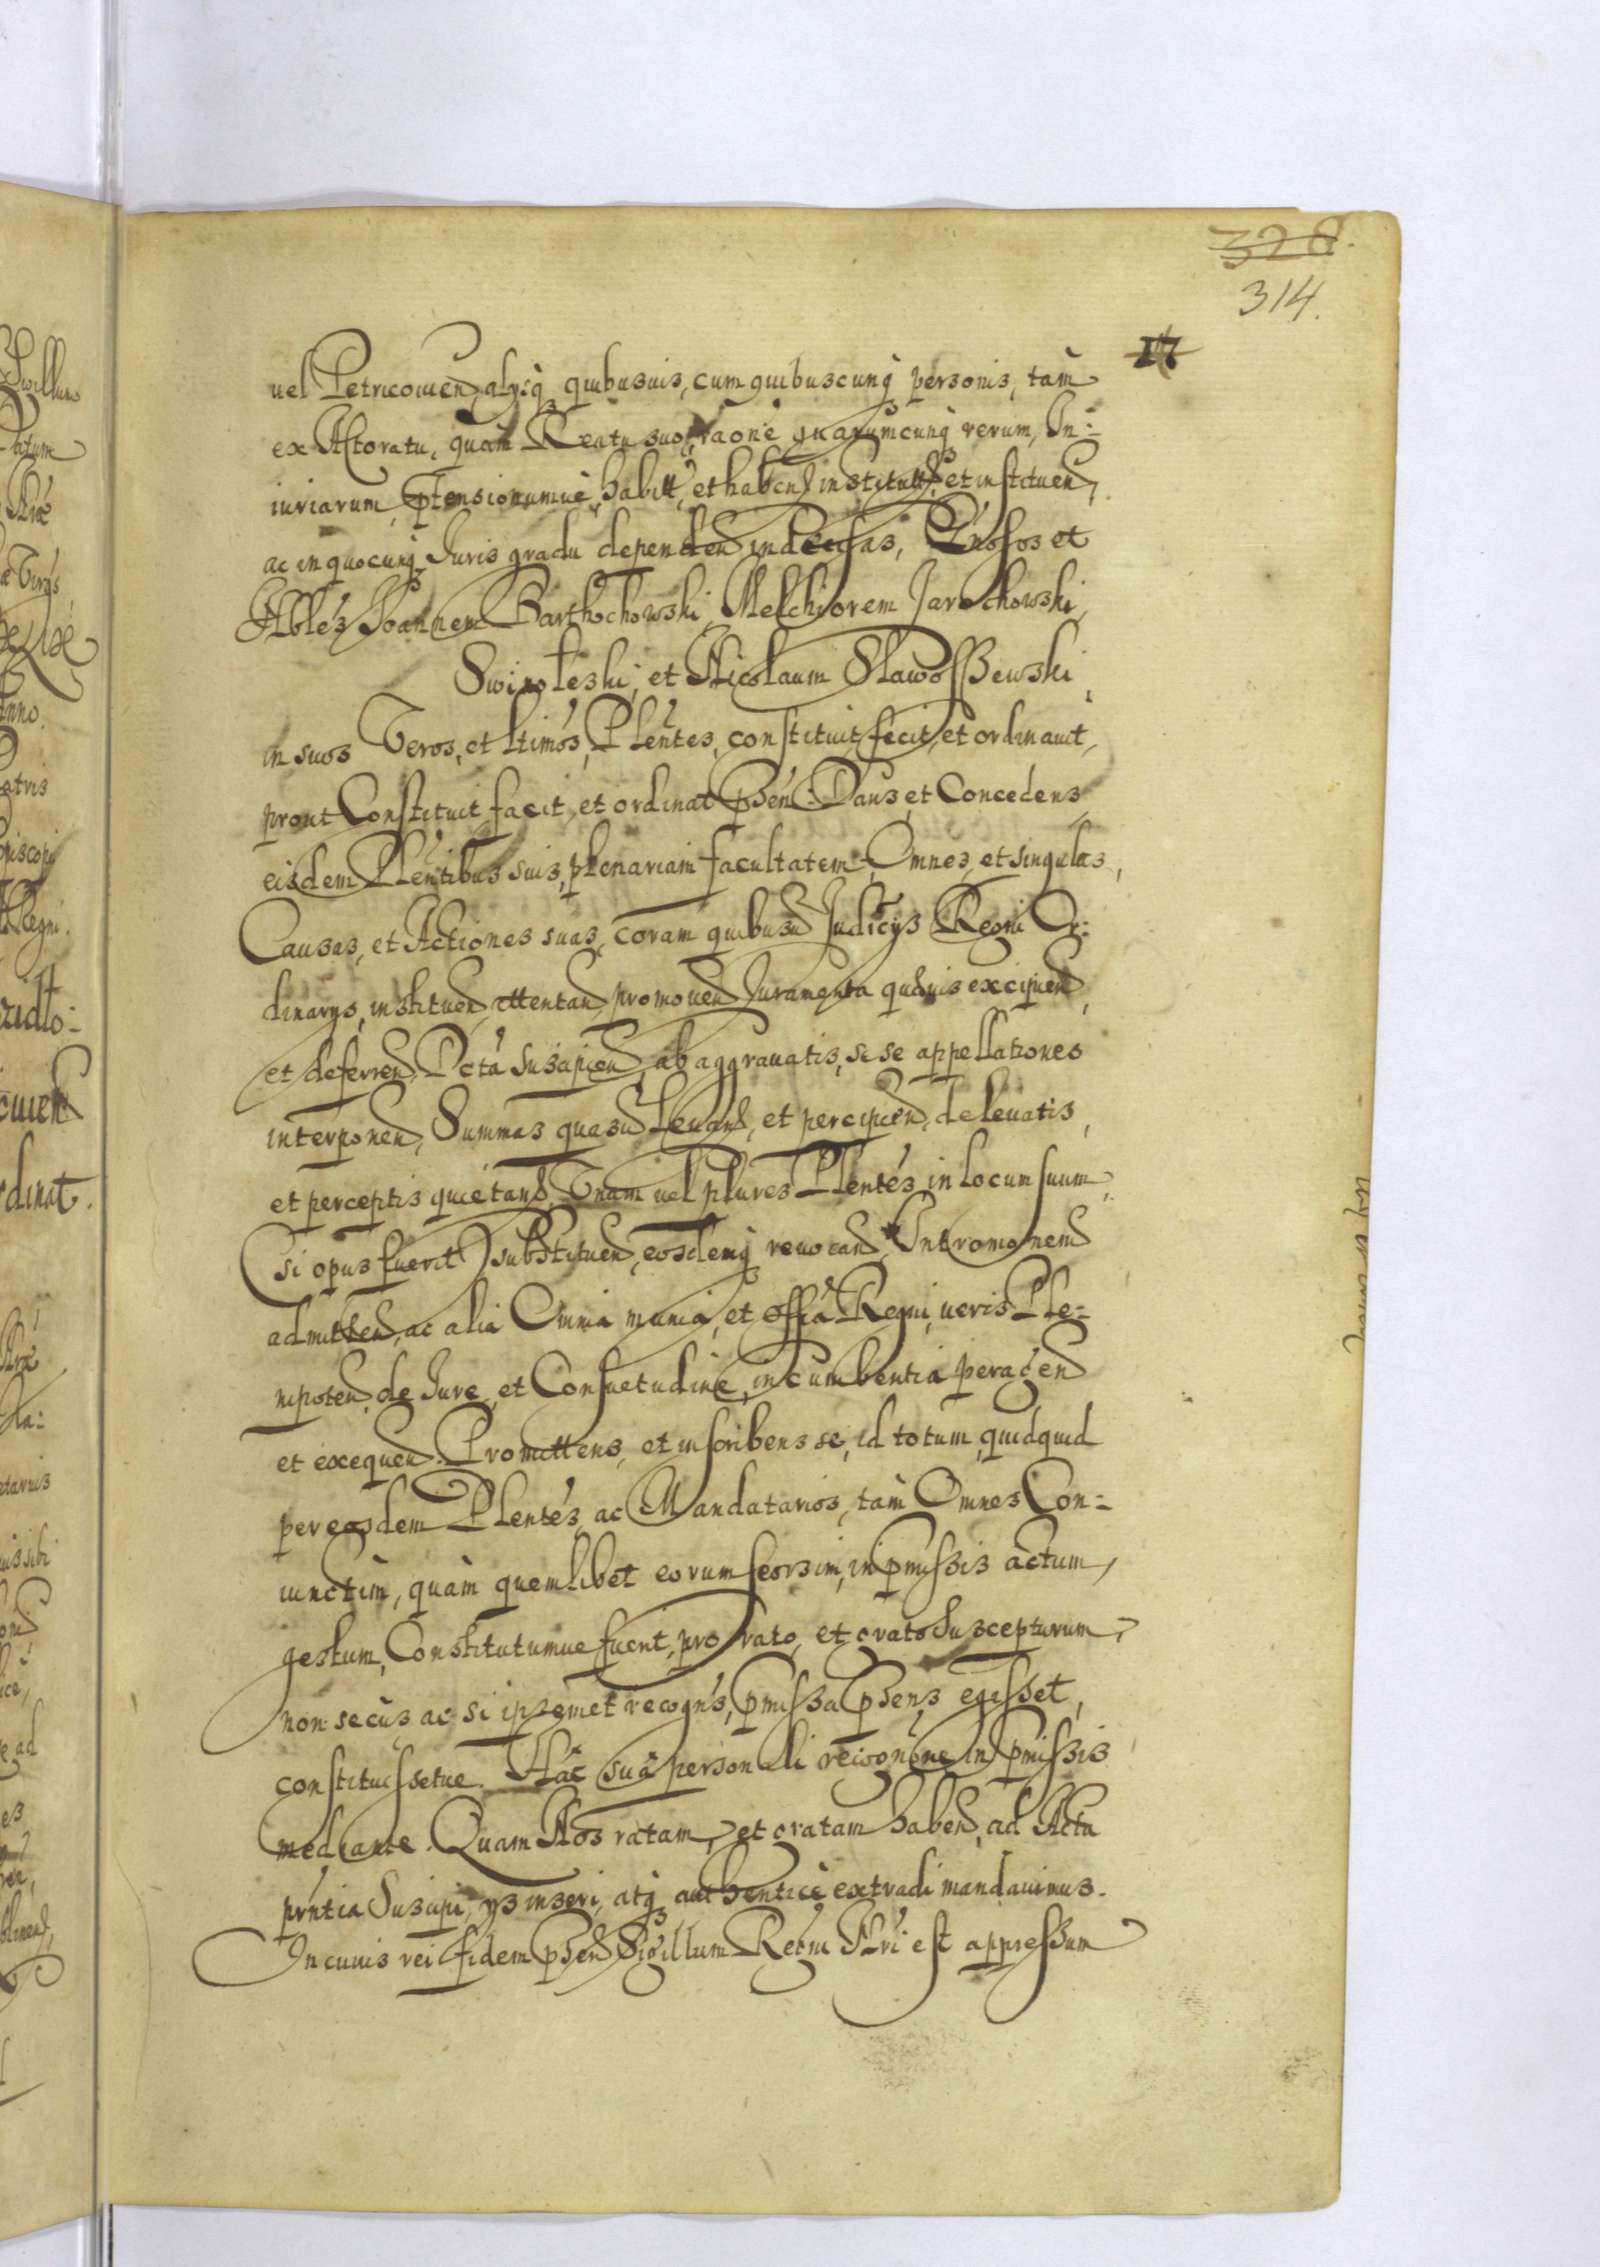 328.
314.
17
uel Petricouien, alysq́ quibusuis, cum quibuscunq́ personis, tàm
ex Actoratu, quàm Reatu suo, raône quarumcunq́ rerum, In:
iuriarum, ptensionumuè, habitt, et habend institutt, et instituend,
ac in quocunq́ Juris gradu dependen indecisas, Gńosos et
Nbles Joannem Barthochowski, Melchiorem Jarochowski,
Swinoleski, et Nicolaum Slawoszewski,
in suos Veros, et ltimós, Plentes, constituit, fecit, et ordinauit,
prout Constituit facit, et ordinat pńsen: Dans, et Concedens,
eisdem Plentibus suis, plenariam facultatem, Omnes, et singulas,
Causas, et Actiones suas, coram quibusu Judicys Regni Or:
dinarys, instituen, attentan, promouen, Juramenta quaeuis excipien,
et deferren, Dctá suscipien, ab aggrauatis, se se appellationes
interponen, Summas quasu Leuand, et percipien, de leuatis,
et perceptis quietand, Vnum uel plures Plentés, in locum suum,
(si opus fuerit) substituen, eosdemq́ reuocand, Intromonem
admitten, ac alia Omnia munia, et offia Regni, ueris Ple:
nipoten, de Jure, et Consuetudine, incumbentia peragen
et exequen. Promittens, et inscribens se, id totum, quidquid
per eosdem Plentés, ac Mandatarios, tàm Omnes Con:
iunctim, quàm quemlibet eorum seorsim, in pmissis actum,
gestum, Constitutumue fuerit, pro rato, et grato Suscepturum,
non secùs ac si ipsemet recogns, pmissa psens egisset,
constituissetue. Hâc suâ personali recognône in pmissis
mediante. Quam Nos ratam, et gratam haben, ad Acta
pńntia Suscipi, ys inseri, atq́ authenticè extradi mandauimus.
In cuius rei fidem psen Sigillum Regni Nri est appressum